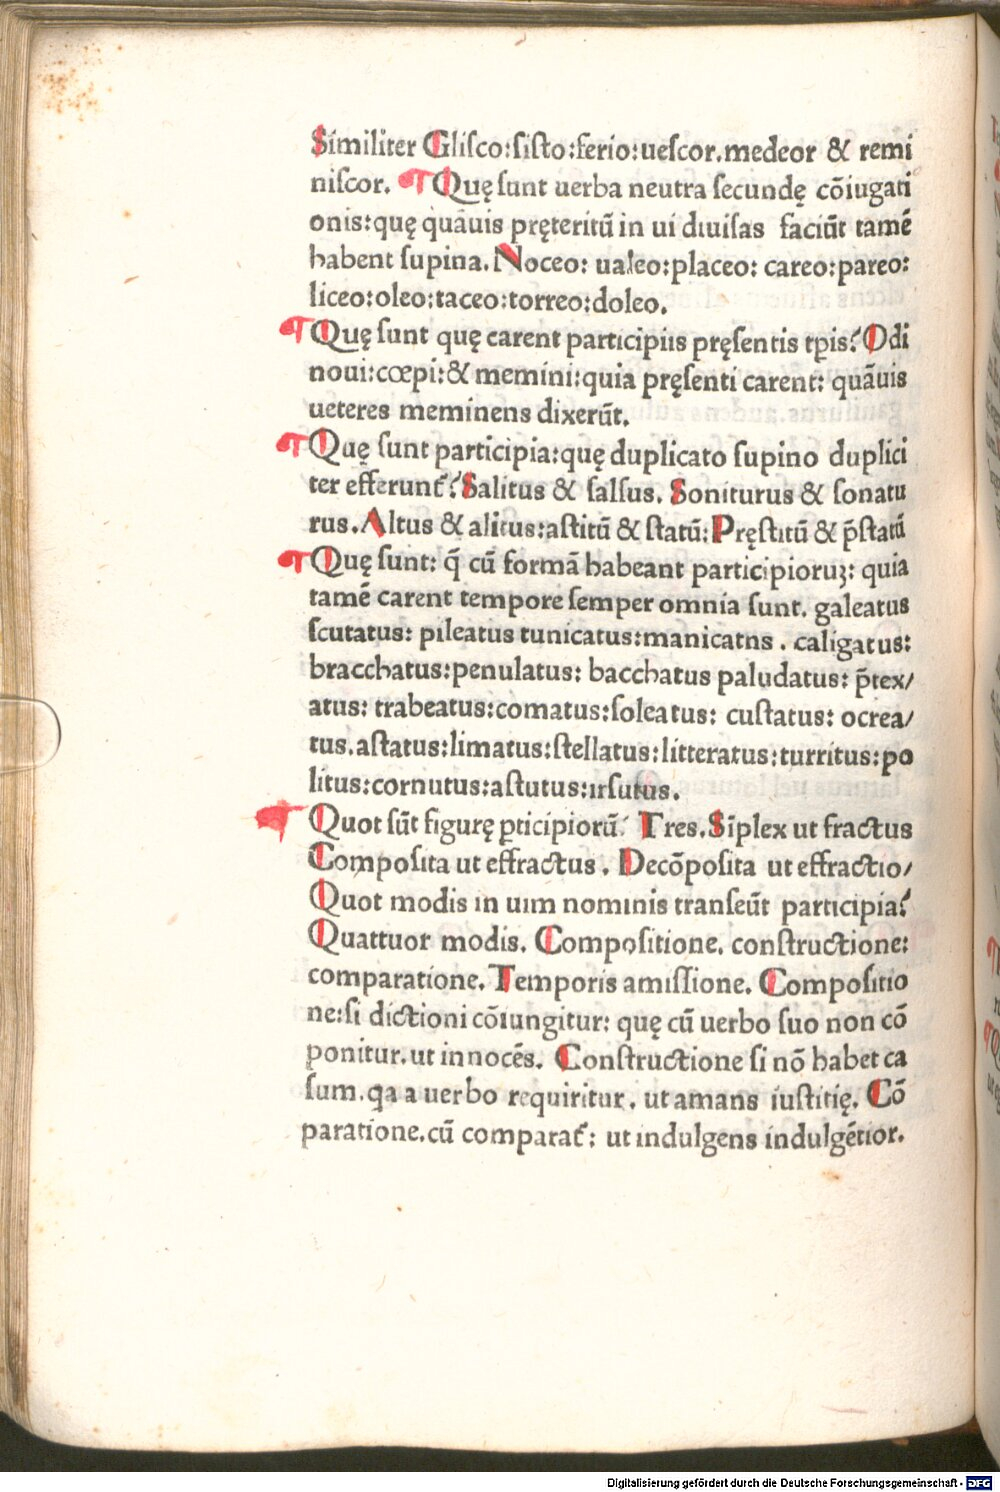 Similiter Gliſco:ſiſto:ferio:ueſcor.medeor & remi
niſcor. ¶ Quę ſunt uerba neutra ſecundę cõiugati
onis:quę quãuis pręteritũ in ui diuiſas faciũt tamẽ
habent ſupina. Noceo: ualeo:placeo: careo:pareo:
liceo:oleo:taceo:torreo:doleo.
¶ Quę ſunt quę carent participiis pręſentis tp̃is? Odi
noui:cœpi:& memini:quia pręſenti carent: quãuis
ueteres meminens dixerũt.
¶ Quę ſunt participia:quę duplicato ſupino duplici
ter efferunt᷑? Salitus & ſalſus. Soniturus & ſonatu
rus. Altus & alitus:aſtitũ & ſtatũ: Pręſtitũ & p̃ſtatũ
¶ Quę ſunt: q̃ cũ formã habeant participioruꝫ: quia
tamẽ carent tempore ſemper omnia ſunt. galeatus
ſcutatus: pileatus tunicatus:manicatns . caligatus:
bracchatus:penulatus: bacchatus paludatus: p̃tex/
atus: trabeatus:comatus:ſoleatus: cuſtatus: ocrea/
tus.aſtatus:limatus:ſtellatus:litteratus:turritus:po
litus:cornutus:aſtutus:irſutus.
¶ Quot ſũt figurę ꝑticipiorũ. Tres. Sĩplex ut fractus
Compoſita ut effractus . Decõpoſita ut effractio/
Quot modis in uim nominis tranſeũt participia?
Quattuor modis. Compoſitione. conſtructione:
comparatione. Temporis amiſſione. Compoſitio
ne:ſi dictioni cõiungitur: quę cũ uerbo ſuo non cõ
ponitur.ut innocẽs. Conſtructione ſi nõ habet ca
ſum.qa a uerbo requiritur. ut amans iuſtitię. Cõ
paratione.cũ comparat᷑: ut indulgens indulgẽtior.
Digitalisierung gefördert durch die Deutsche Forschungsgemeinschaft - DFG